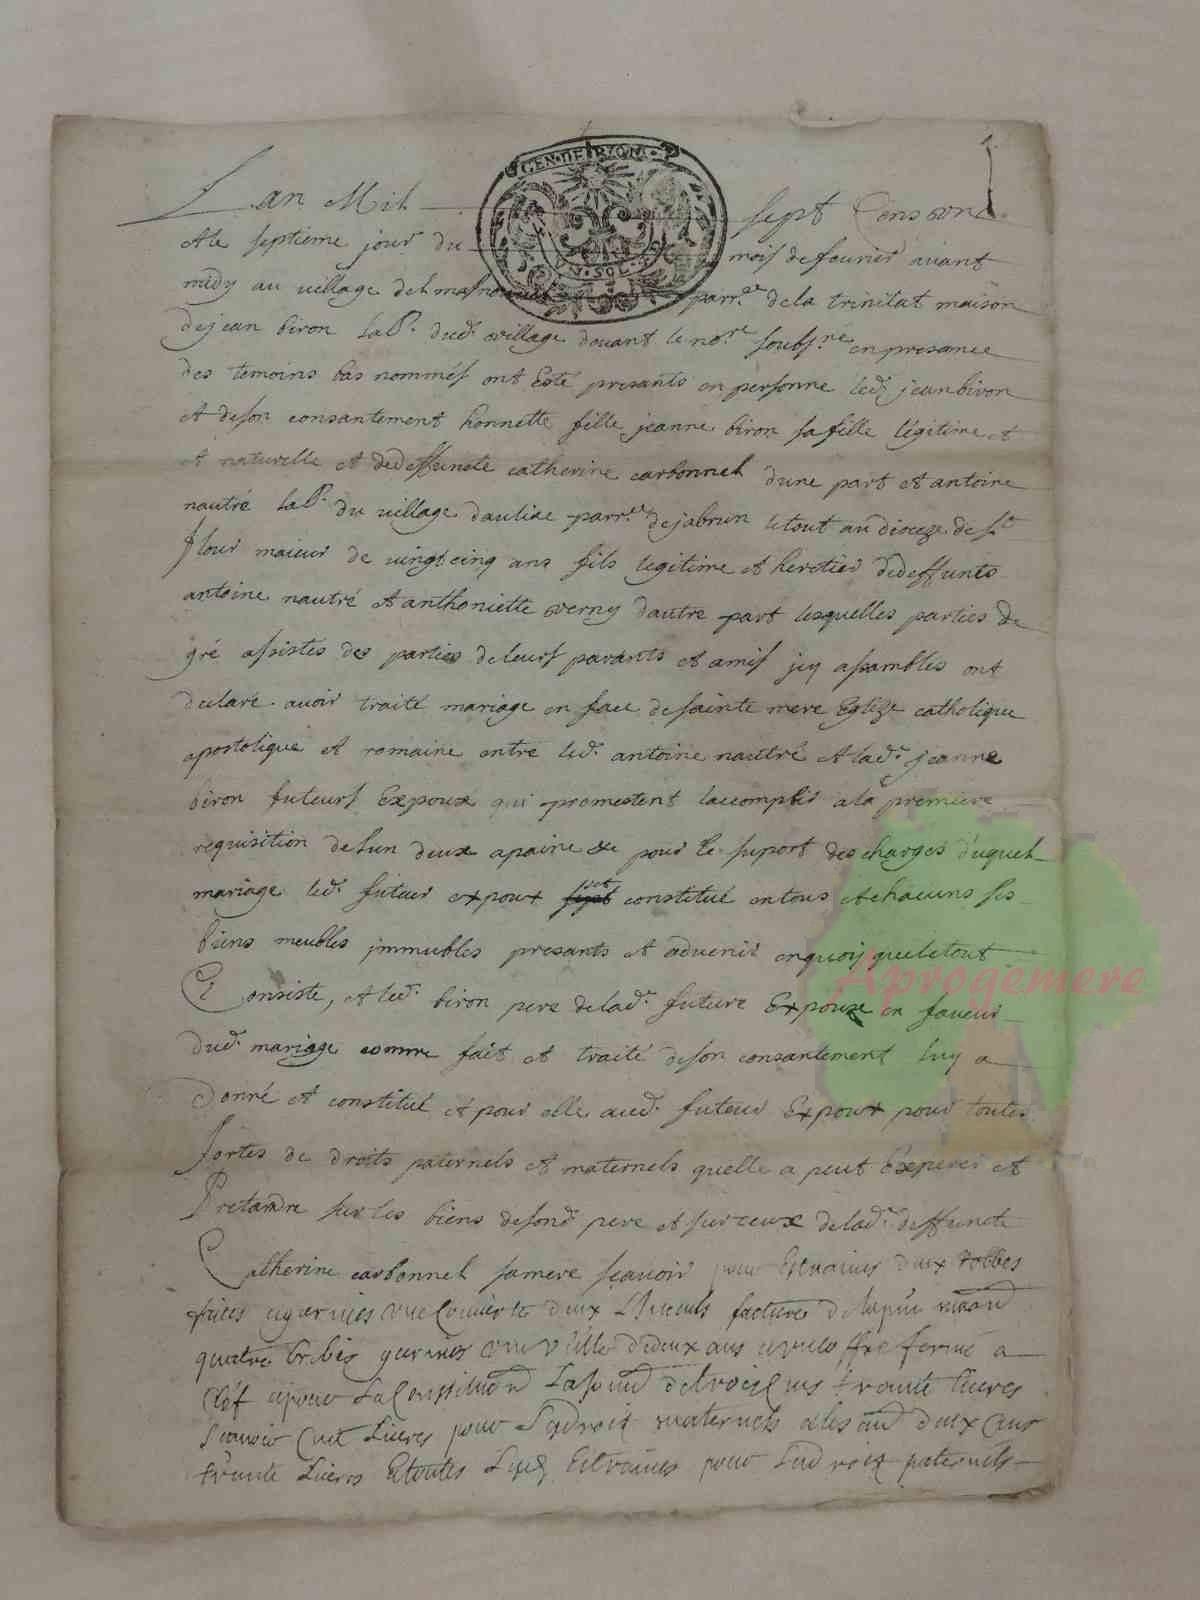 GEN·DE RIOM
UN·SOL·
Lan Mil sept Cens onze
Et le septieme jour du mois defeurier auant
midy au village delmasnouuel parr.e dela trinitat maison
dejean biron lab.r dud. village douant le no.re soubs.né en presance
des temoins bas nommés ont esté presants en personne led. jean biron
et deson consantement honnette fille jeanne biron sa fille légitime et
et naturelle et dedeffuncte catherine carbonnel dune part et antoine
nautré lab.r du village dauliac parr.e dejabrun letout au dioceze de s.t
flour maieur de vingt cinq ans fils legitime et heretier dedeffunts
antoine nautré et anthoniette verny dautre part lesquelles parties de
gré assistes des parties deleurs parants et amis jcy assamblés ont
declaré auoir traité mariage en face desainte mere Eglize catholique
apostolique et romaine entre led. antoine nautré et lad. jeanne
biron futeurs Expoux qui promestent laccomplir ala premiere
requisition delun deux apaine &c pour le suport des charges duquel
mariage led. futeur expoux sest constitué entous et chacuns ses
biens meubles jmmubles presants et advenir en quoy que le tout
Consiste, et led. biron pere delad. future Expouxe en faveur
dud. mariage comme fait et traité deson consantement luy a
donné et constitué et pour elle aud. futeur Expoux pour toutes
sortes de droits paternels et maternels quelle a peut Experer et
Pretandre sur les biens desond. pere et sur ceux delad. deffuncte
Catherine carbonnel samere scauoir pour Estraines deux robbes
faites et garnies vne Couuerte deux Linceuls facture de lapin
quatre brebis garnies vne vele dedeux ans coffre fermé a
clef et pour La Constitution La somme de trois Cens trante liures
scauoir Cent Liures pour Sesdroits maternels et les deux Cens
trante Liures et toutes Lesd. Estraines pour Sesdroits paternels
Aprogemere